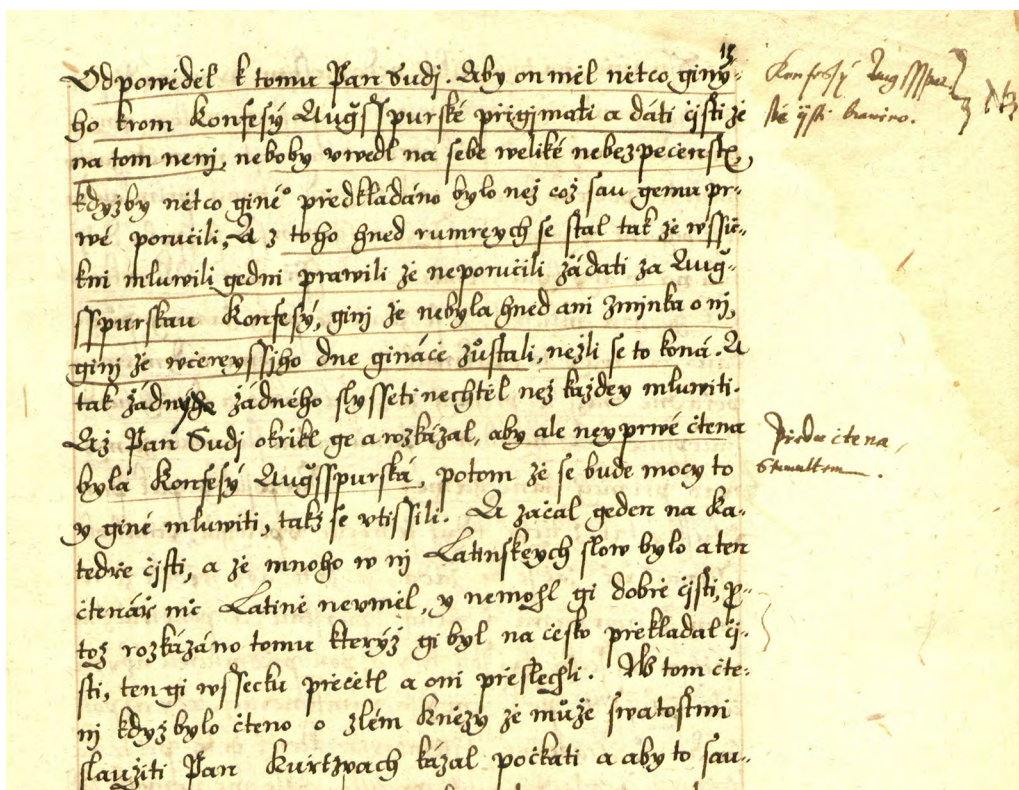 15
Odpowěděl k tomu Pan Sudj. Aby on měl nětco giný-
ho krom Konfesý Augsspurské přigjmati a dáti čjsti že
na tom nenj, neboby uwedl na sebe weliké nebezpečenst.,
kdyžby nětco giné° předkládáno bylo než což sau gemu pr-
wé poručili, A z toho hned rumreych se stal tak že wssič-
kni mluwili gedni prawili že neporučili žádati za Aug-
sspurskau Konfesý, ginj že nebyla hned ani zmjnka o nj,
ginj že wčereyssjho dne gináče zůstali, nežli se to koná. A
tak žádný žádného slysseti nechtěl než každey mluwiti.
Až Pan Sudj okřikl ge a rozkázal, aby ale neyprwé čtena
byla Konfesý Augsspurská, potom že se bude mocy to
y giné mluwiti, takž se utissili. A začal geden na Ka-
tedře čjsti, a že mnoho w nj Latinskeych slow bylo a ten
čtenář nic Latině neuměl, y nemohl gi dobře čjsti, p-
tož rozkázáno tomu kterýž gi byl na česko překládal čj-
sti, ten gi wssecku přečetl a oni přeslechli. W tom čte-
nj když bylo čteno o zlém Kněžy že může swatostmi
slaužiti Pan Kurtzpach kázal počkati a aby to sau-
Konfessý Augssspur-
ské čjsti
čtena